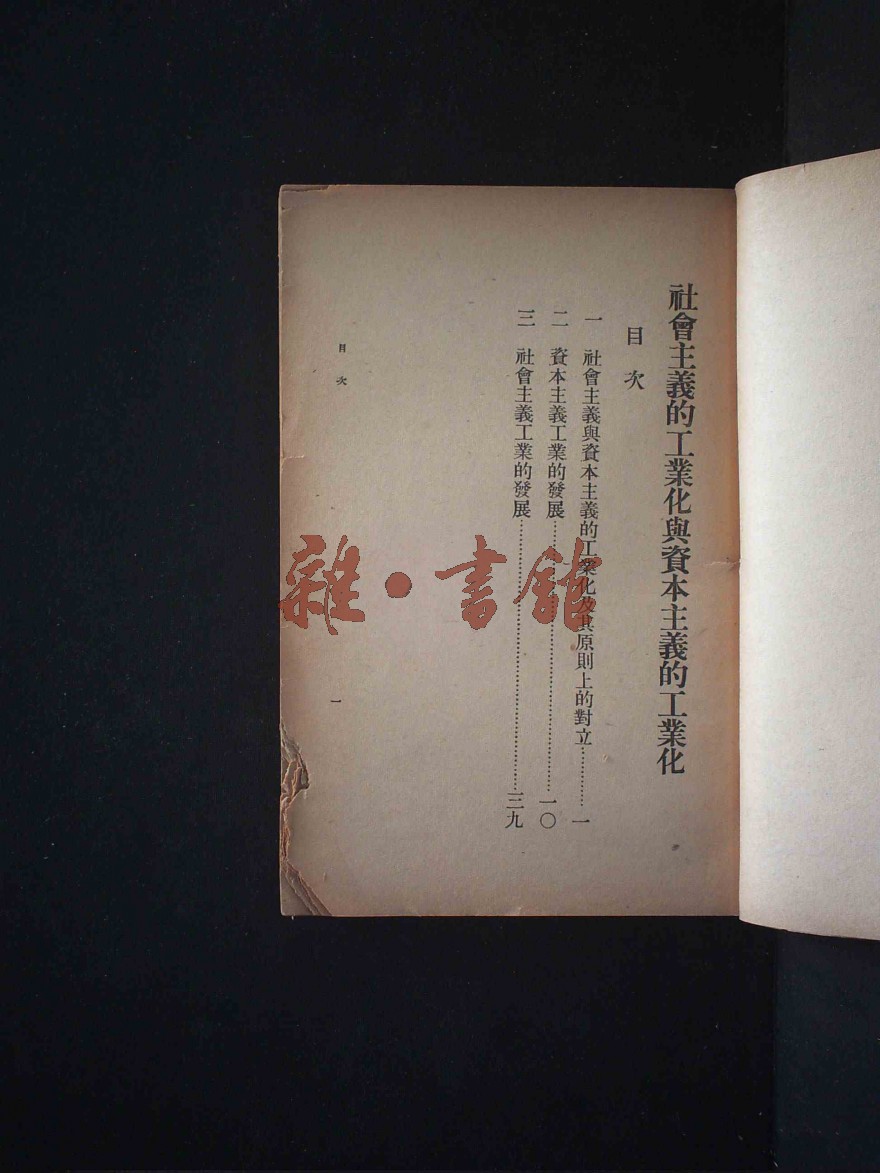 社會主義的工業化與資本主義的工業化
目次
一 社會主義與資本主義的工業化及其原則上的對立…………一
二 資本主義工業的發展…………一〇
三 社會主義工業的發展…………三九
目次
一
雜·書館